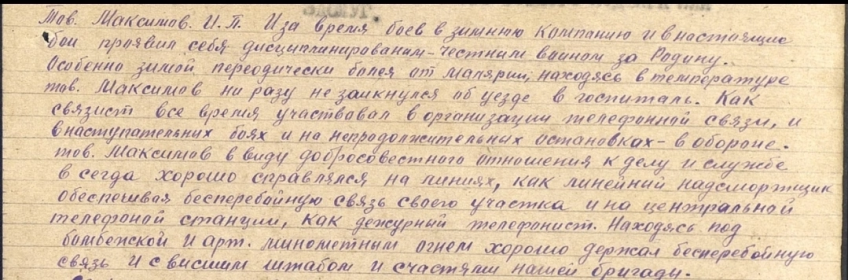 Тов. Максимов. И.П. Иза время боев в зимнюю компанию и внастоящие
бои проявил себя дисциплинированим-честным воином за Родину.
Особенно зимой переодически болея от малярии, находясь в температуре
тов. Максимов ни разу не заикнулся об уезде в госпиталь. Как
связист все время участвовал в организации телефонной связи, и
внаступательних боях и на непродолжительных остановках - в обороне.
тов. Максимов в виду добросовестного отношения к делу и службе
в сегда хорошо справлялся на линиях, как линейний надсмортщик
обеспечивая бесперебойную связь своего участка и на центральной
телефоной станции, как дежурный телефонист. Находясь под
бомбежской и арт. минометным огнем хорошо держал бесперебойную
связь и с висшим штабом и счастями нашей бригади.